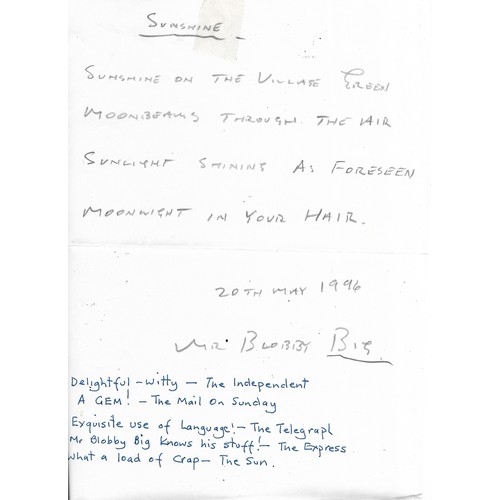 SUNSHINE
SUNSHINE ON THE VILLAGE GREEN
MOONBEAMS THROUGH THE AIR
SUNLIGHT SHINING AS FORESEEN
MOONLIGHT IN YOUR HAIR.
20TH MAY 1996
MR BLOBBY BIG
Delightful - Witty - The Independent
A GEM! - The Mail On Sunday
Exquisite use of Language! - The Telegraph
Mr Blobby Big knows his stuff! - The Express
What a load of Crap - The Sun.